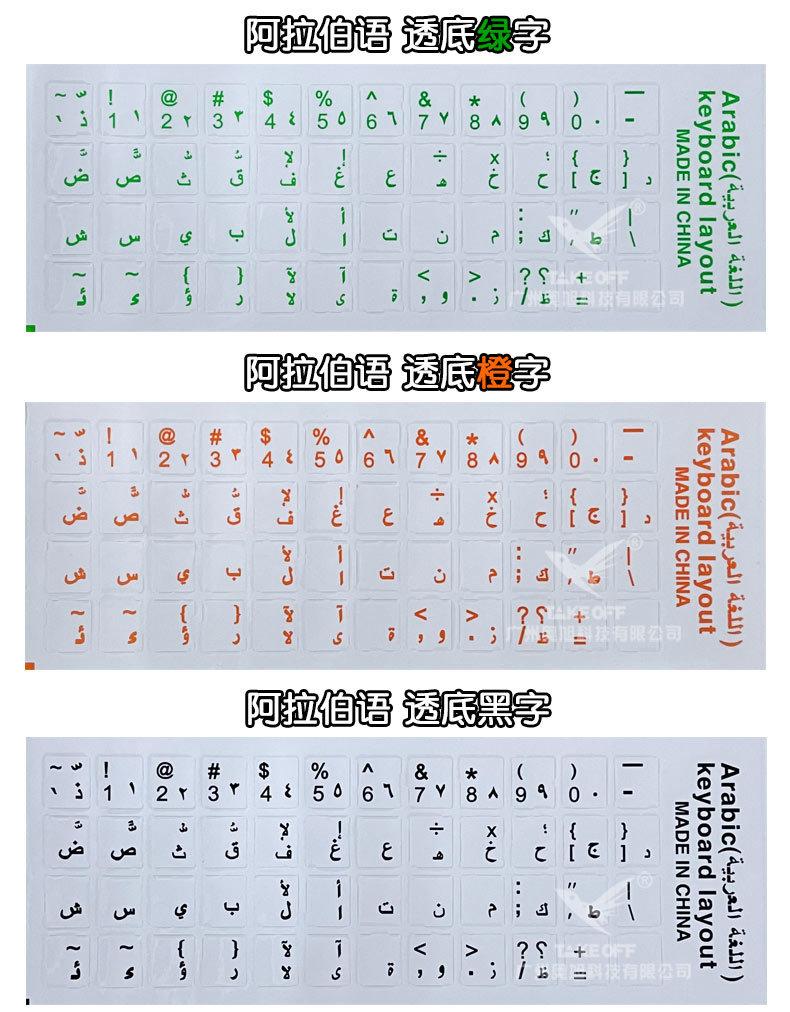 阿拉伯语 透底绿字
~ ّ ! @ # $ % ^ & * ( ) —
ذ 1 ١ 2 ٢ 3 ٣ 4 ٤ 5 ٥ 6 ٦ 7 ٧ 8 ٨ 9 ٩ 0 ٠ -
لإ إ ÷ x ؛ { }
ض ص ث ق ف غ ع ه خ ح [ ج ] د
لأ أ : " |
ش س ي ب ل ا ت ن م ; ك ' ط \
~ ~ { } لآ آ < > ? ؟ +
ئ ء ؤ ر لا ى ة و , ز . / ظ =
Arabic(اللغة العربية)
keyboard layout
MADE IN CHINA
®
TAKE OFF
阿拉伯语 透底橙字
~ ّ ! @ # $ % ^ & * ( ) —
ذ 1 ١ 2 ٢ 3 ٣ 4 ٤ 5 ٥ 6 ٦ 7 ٧ 8 ٨ 9 ٩ 0 ٠ -
لإ إ ÷ x ؛ { }
ض ص ث ق ف غ ع ه خ ح [ ج ] د
لأ أ : " |
ش س ي ب ل ا ت ن م ; ك ' ط \
~ ~ { } لآ آ < > ? ؟ +
ئ ء ؤ ر لا ى ة و , ز . / ظ =
Arabic(اللغة العربية)
keyboard layout
MADE IN CHINA
®
TAKE OFF
阿拉伯语 透底黑字
~ ّ ! @ # $ % ^ & * ( ) —
ذ 1 ١ 2 ٢ 3 ٣ 4 ٤ 5 ٥ 6 ٦ 7 ٧ 8 ٨ 9 ٩ 0 ٠ -
لإ إ ÷ x ؛ { }
ض ص ث ق ف غ ع ه خ ح [ ج ] د
لأ أ : " |
ش س ي ب ل ا ت ن م ; ك ' ط \
~ ~ { } لآ آ < > ? ؟ +
ئ ء ؤ ر لا ى ة و , ز . / ظ =
Arabic(اللغة العربية)
keyboard layout
MADE IN CHINA
®
TAKE OFF